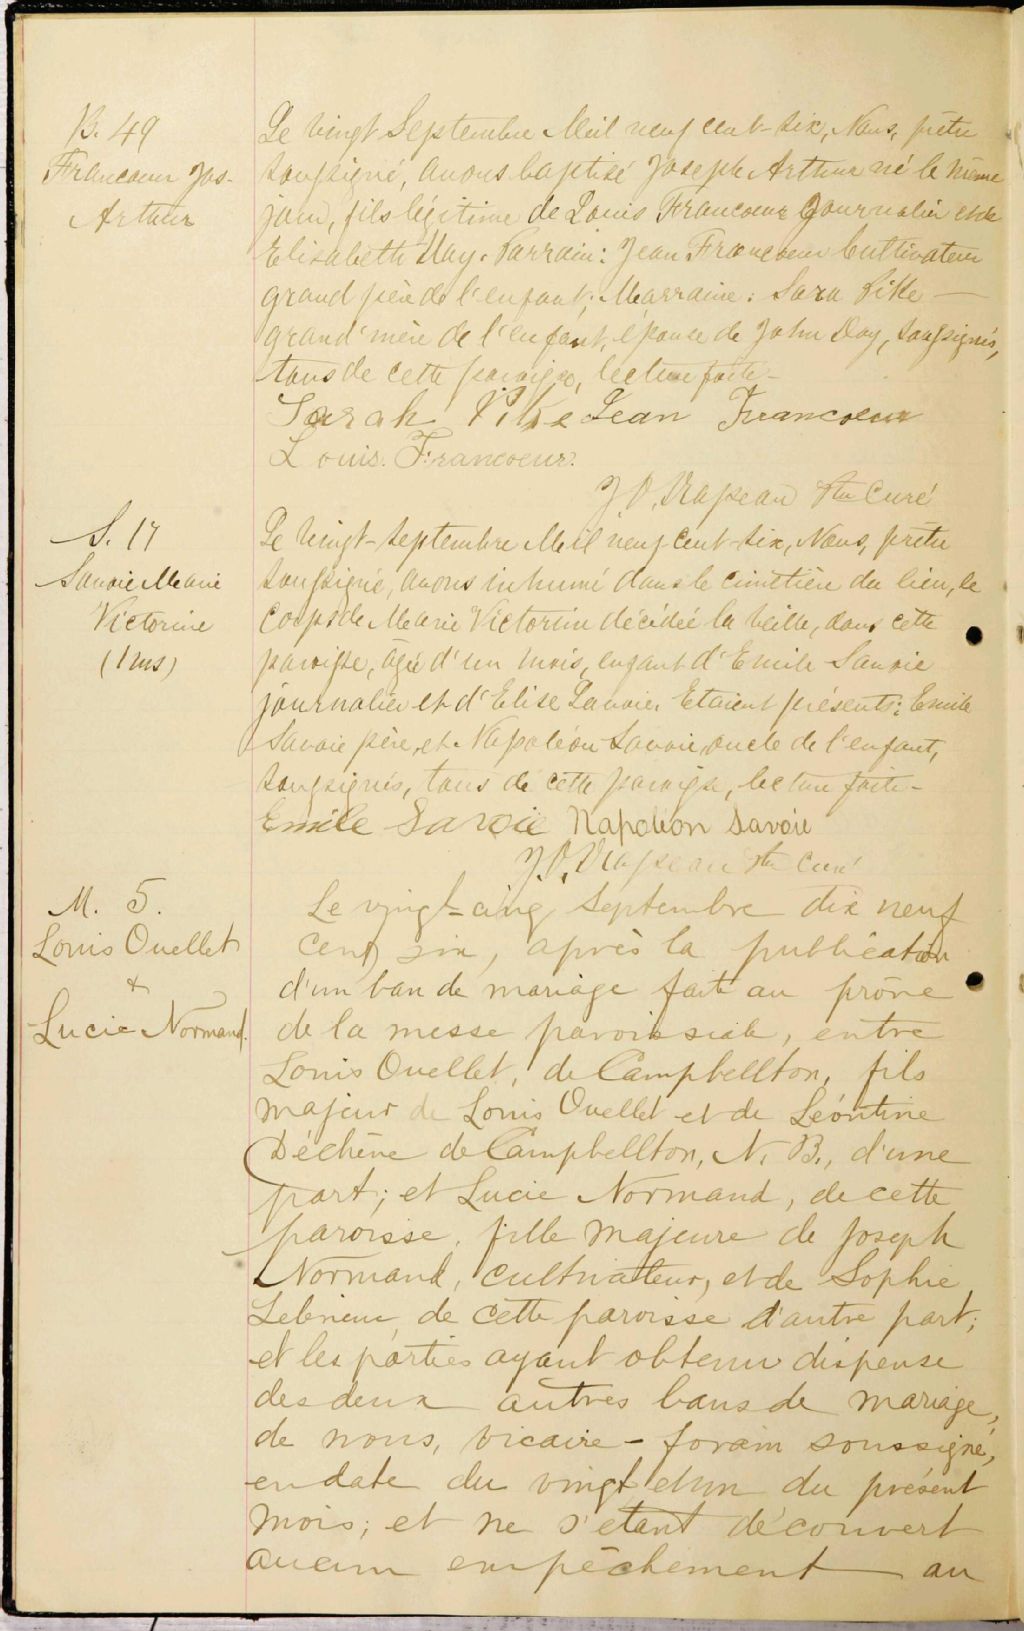 B. 49
Francoeur Jos-
Arthur
Le vingt Septembre Mil neuf cent-six, Nous, prêtre
soussigné, avons baptisé Joseph Arthur né le même
jour, fils légitime de Louis Francoeur Journalier et de
Elisabeth Day. Parrain: Jean Francoeur Cultivateur
grand père de l'enfant; Marraine: Sara Pike —
grand'mère de l'enfant, épouse de John Day, soussignés,
tous de cette paroisse, lecture faite-
Sarah Pike Jean Francoeur
Louis. Francoeur.
J. O. Drapeau Ptre Curé
S. 17
Savoie Marie
Victorine
(1 ms)
Le vingt-septembre Mil neuf cent-six, Nous, prêtre
soussigné, avons inhumé dans le cimetière du lieu, le
corps de Marie Victorine décédée la veille, dans cette
paroisse, âgée d'un mois, enfant d'Emile Savoie
journalier et d'Elise Savoie. Etaient présents: Emile
Savoie père, et Napoléon Savoie, oncle de l'enfant,
soussignés, tous de cette paroisse, lecture faite-
Emile Savoie Napoléon Savoie
J. O. Drapeau Ptre Curé
M. 5.
Louis Ouellet
&
Lucie Normand.
Le vingt-cinq septembre dix neuf
cent six, après la publication
d'un ban de mariage faite au prône
de la messe paroissiale, entre
Louis Ouellet, de Campbellton, fils
majeur de Louis Ouellet et de Léontine
Déchêne de Campbellton, N. B., d'une
part; et Lucie Normand, de cette
paroisse, fille majeure de Joseph
Normand, cultivateur, et de Sophie
de cette paroisse d'autre part;
et les parties ayant obtenu dispense
des deux autres bans de mariage,
de nous, vicaire-forain soussigné,
en date du vingt et un du présent
mois; et ne s'étant découvert
aucun empêchement au